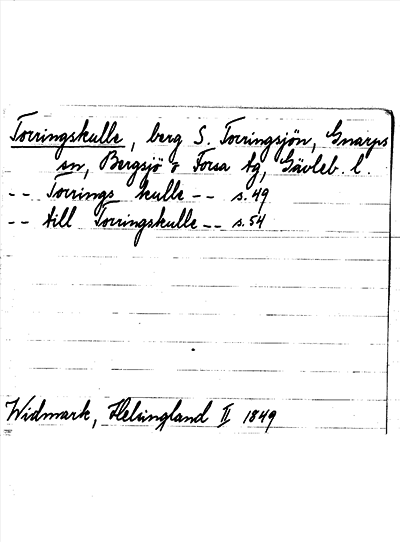 Torringskulle, berg S. Torringsjön, Gnarps
sn, Bergsjö o Forsa tg, Gävleb. l.
-- Torrings kulle -- s. 49
-- till Torringskulle -- s. 54
Widmark, Helsingland II 1849